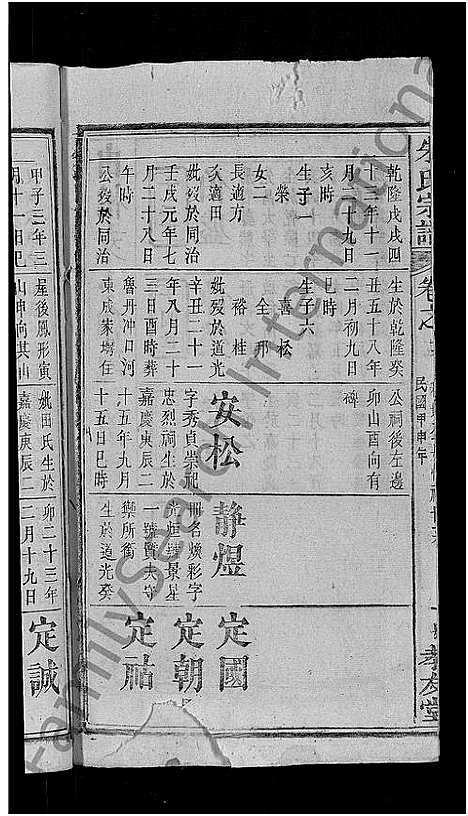 乾隆戊戌四
十三年十一
月二十九日
亥時
生子一
榮
女二
長適方
次適田
妣歿於同治
壬戌元年七
月二十八日
午時
公歿於同治
生於乾隆癸
丑五十八年
二月初九日
巳時
生子六
喜松
全邦
裕桂
妣歿於道光
辛丑二十一
年八月二十
三日酉時葬
魯丹冲口河
東成家塆住
公祠後左邊
卯山酉向有
碑
安松
字秀貞崇祀
忠烈祠生於
嘉慶庚辰二
十五年九月
十五日巳時
静煜
冊名煥彩字
光炬號景星
一號贊夫守
禦所衛
生於道光癸
定國
定朝
定祐
朱氏宗譜
卷之
民國甲申年
孝友堂
甲子三年三
月十一日巳
屋後鳳形寅
山申向其山
妣田氏生於
嘉慶庚辰二
卯二十三年
二月十九日
定誠
FamilySearch International